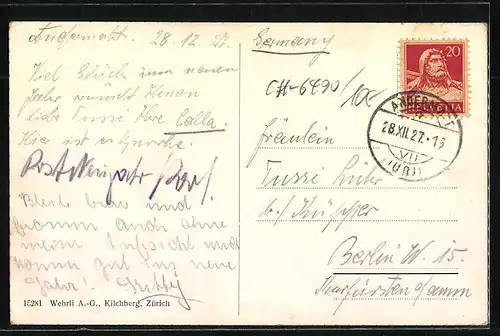 Andermatt. 28.12.27.
Viel Glück zum neuen
Jahr wünscht Ihnen
liebe Tussi Ihre Calla.
Hier ist es
Prost Neujahr
Bleib brav und
fromm auch ohne
meine Aufsicht und
komm gut ins neue
Jahr!
15281 Wehrli A.-G., Kilchberg, Zürich
Germany
CH-6490/
20
HELVETIA
ANDERMATT
28.XII.27.-
(URI)
Fräulein
Tussi
b./ Küpper
Berlin W. 15.
Kurfürstendamm